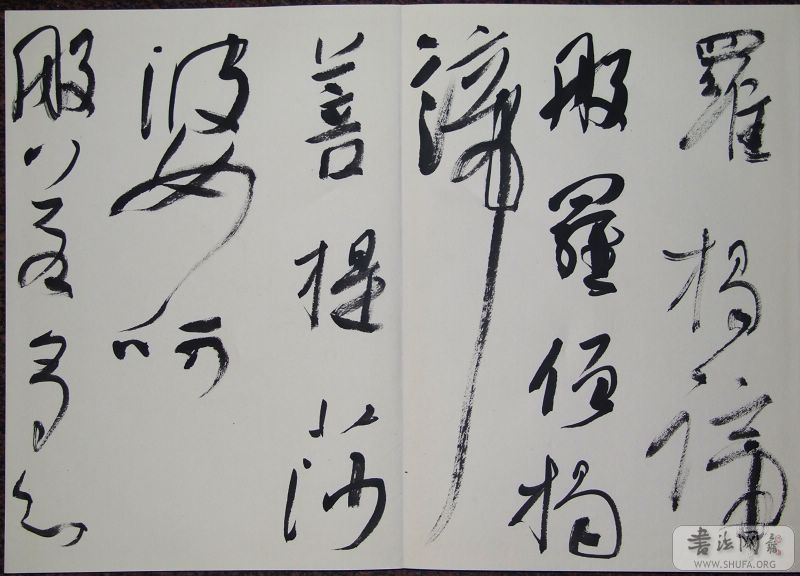 羅揭諦
般羅僧揭
諦
菩提莎
婆呵
般若多心
书法网
WWW.SHUFA.ORG